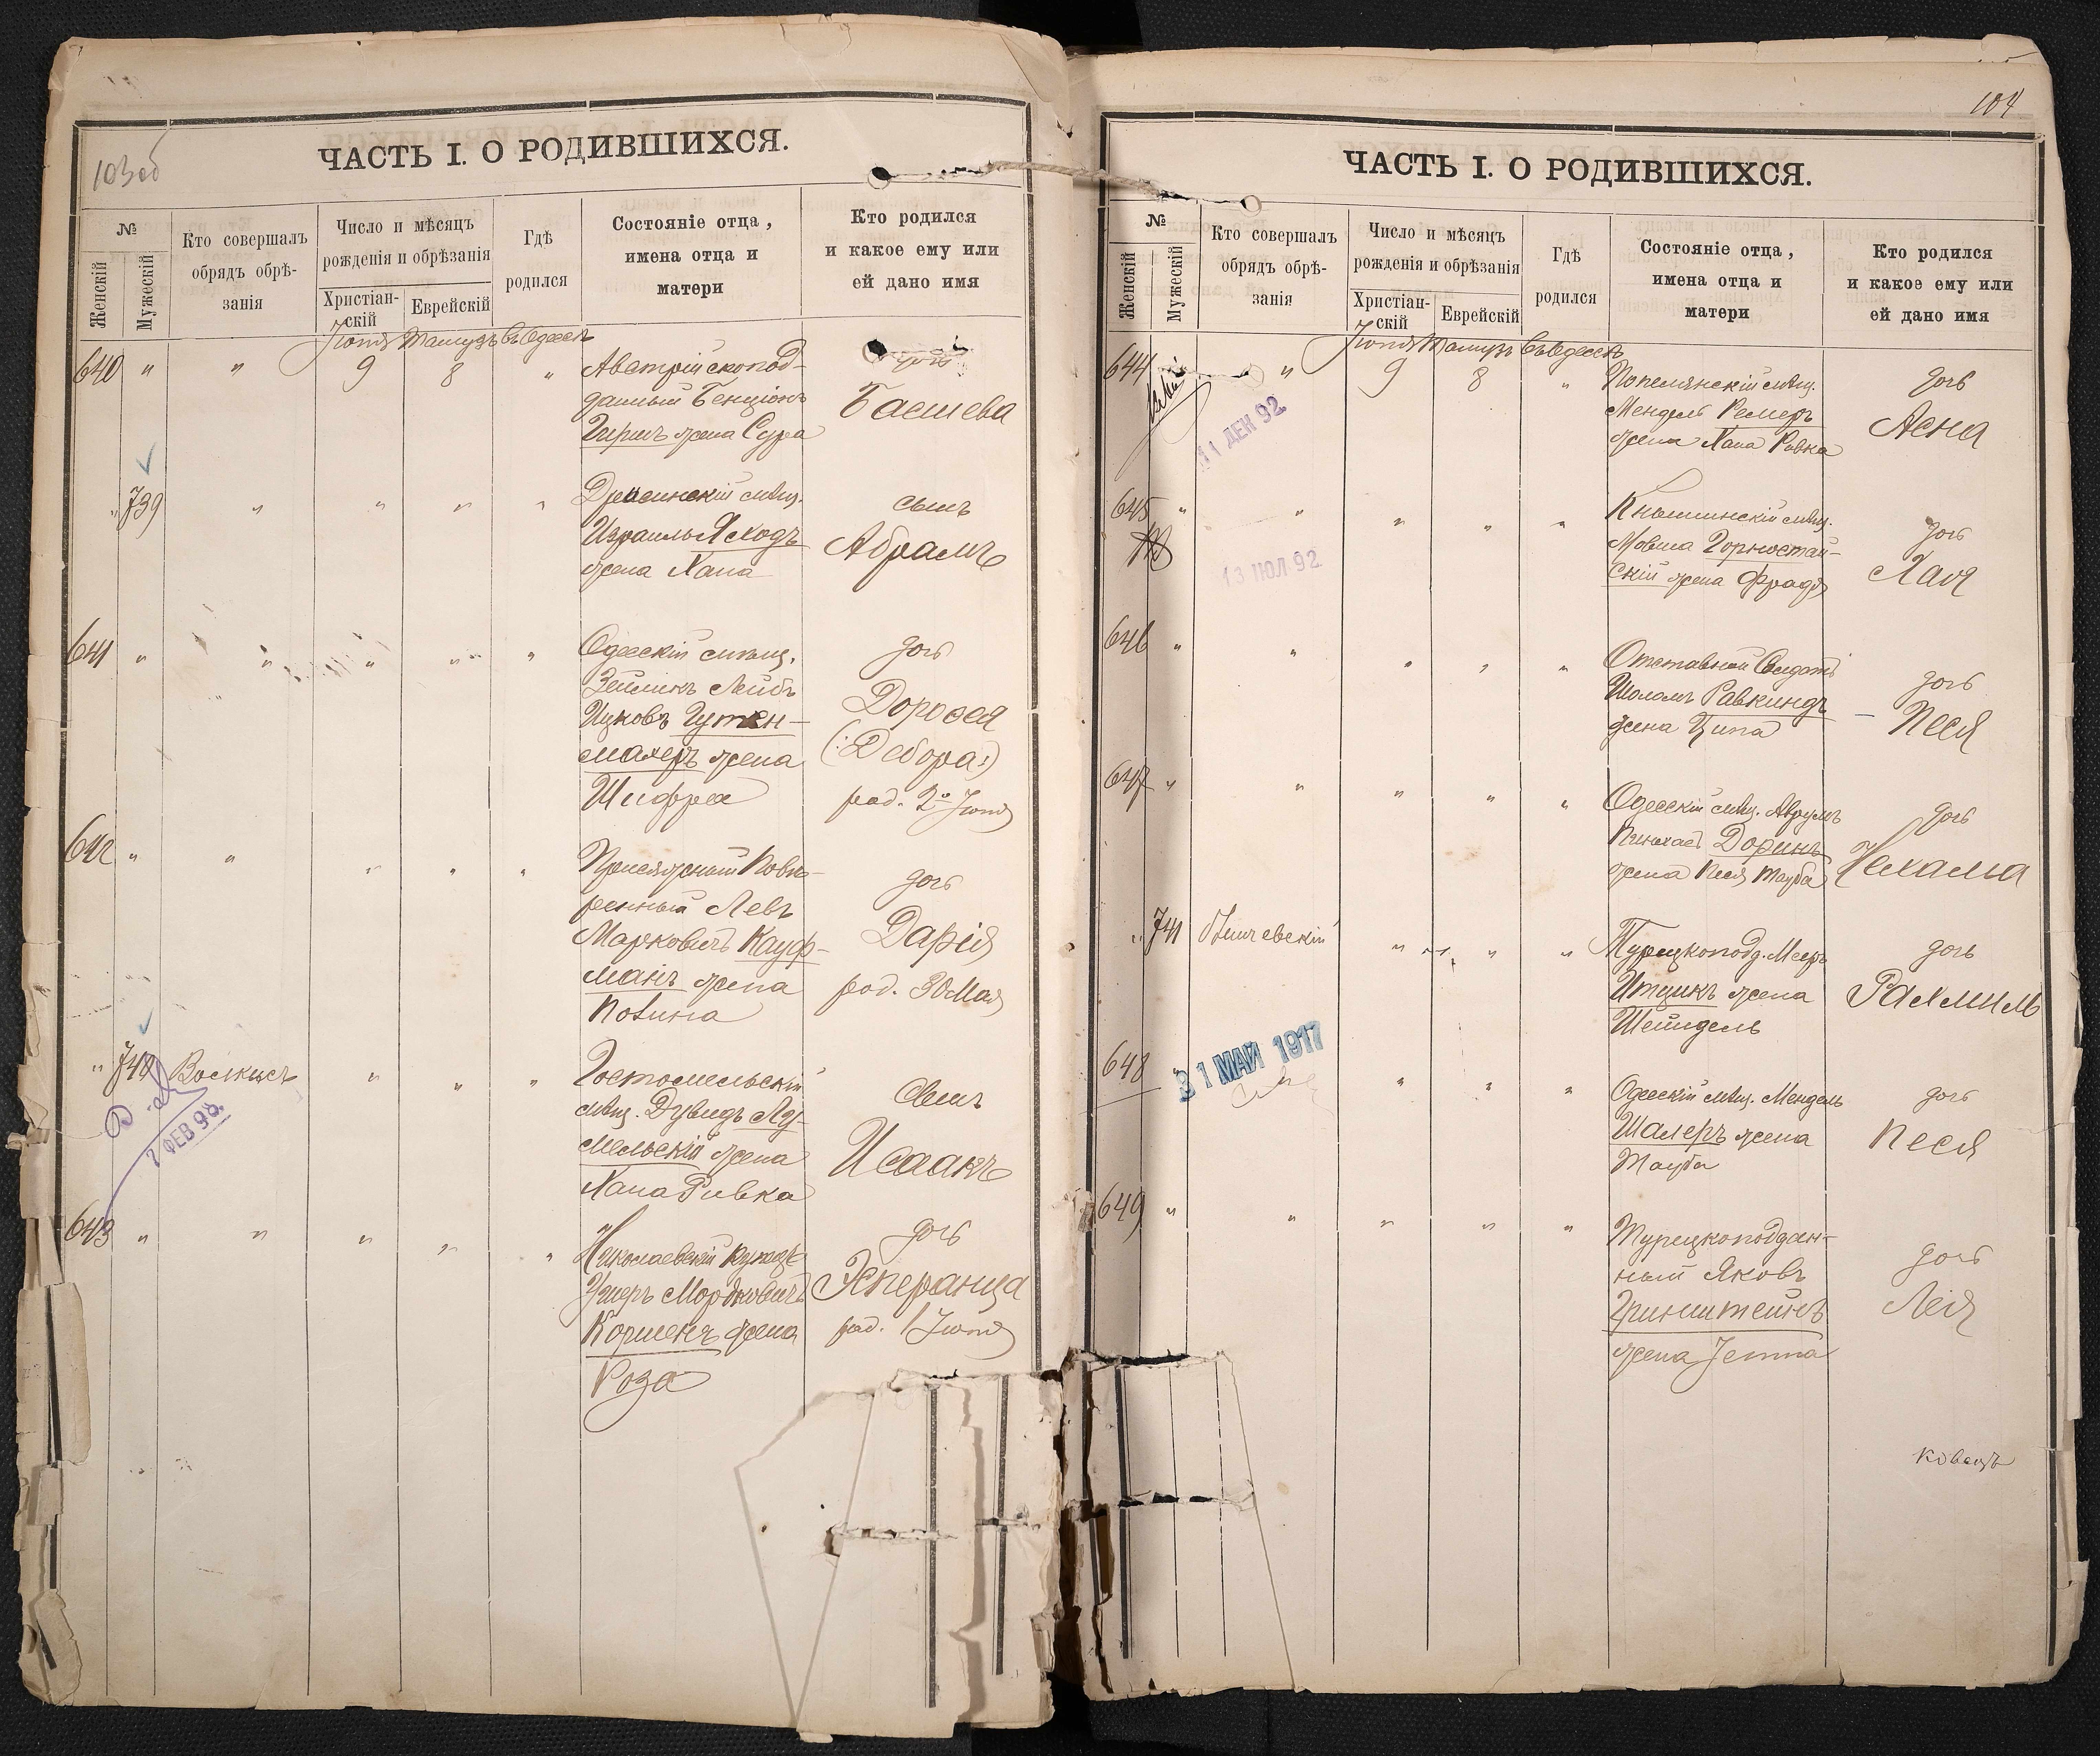 103об
ЧАСТЬ I. О РОДИВШИХСЯ.
№
Женскій
Мужескій
Кто совершалъ
обрядъ обрѣ-
занія
Число и мѣсяцъ
рожденія и обрѣзанія
Христіан-
скій
Еврейскій
Гдѣ
родился
Состояніе отца,
имена отца и
матери
Кто родился
и какое ему или
ей дано имя
Іюня Тамузъ въ Одессѣ
640 " " 9 8 "
Австрійскопод-
данный Бенціонъ
Гиршъ жена Сура
дочь
Башева
" 739 " " " "
мѣщ.
Израиль
жена Хана
сынъ
Абрамъ
641 " " " " "
Одесскій мѣщ.
Зейликъ Лейбъ
Ицковъ Гутен-
махеръ жена
Шифра
дочь
Дорофея
(:Дебора:)
род. 2го Іюня
642 " " " " "
Присяжный Повѣ-
ренный Левъ
Марковичъ Кауф-
манъ жена
дочь
Дарія
род. 30 Мая
" 740 " " "
7 ФЕВ 98
Гостомельскій
мѣщ. Дувидъ Лу-
мельскій жена
Хана Ривка
сынъ
Исаакъ
643 " " " " "
Николаевскій купецъ
Мордковичъ
жена
Роза
дочь
Эсперанца
род. 1 Іюня
104
ЧАСТЬ I. О РОДИВШИХСЯ.
№
Женскій
Мужескій
Кто совершалъ
обрядъ обрѣ-
занія
Число и мѣсяцъ
рожденія и обрѣзанія
Христіан-
скій
Еврейскій
Гдѣ
родился
Состояніе отца,
имена отца и
матери
Кто родился
и какое ему или
ей дано имя
Іюня Тамузъ въ Одессѣ
644 " 9 8 "
11 ДЕК 92
Попелянскій мѣщ.
Мендель Ремеръ
жена Хана Ривка
дочь
Асна
645 " " " " "
13 ІЮЛ 92
Кнышинскій мѣщ.
Мовша Горностай-
скій жена Фрадя
дочь
Хая
646 " " " " "
Отставной Солдатъ
Шоломъ Равкиндъ
жена Ципа
дочь
Песя
647 " " " " "
Одесскій мѣщ. Аврумъ
Пинхасъ Доринъ
жена Песя Тауба
дочь
Нехама
" 741 " " "
Турецкопод. Мееръ
Итцикъ жена
Шейндель
дочь
Рахмиль
648 " " " " "
31 МАЙ 1917
Одесскій мѣщ. Мендель
Шалеръ жена
Тауба
дочь
Песя
649 " " " " "
Турецкоподдан-
ный Яковъ
Гринштейнъ
жена Јента
дочь
Лея